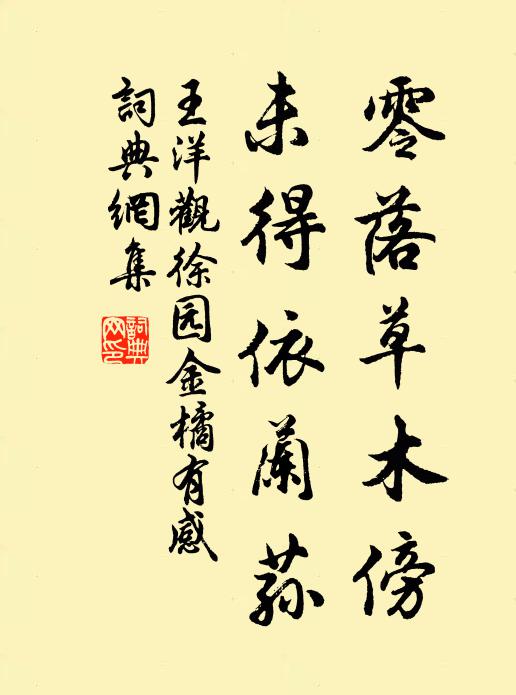 零落草木傍
未得依蘭蓀
王洋觀徐园金橘有感
詞典網集
詞典
网印